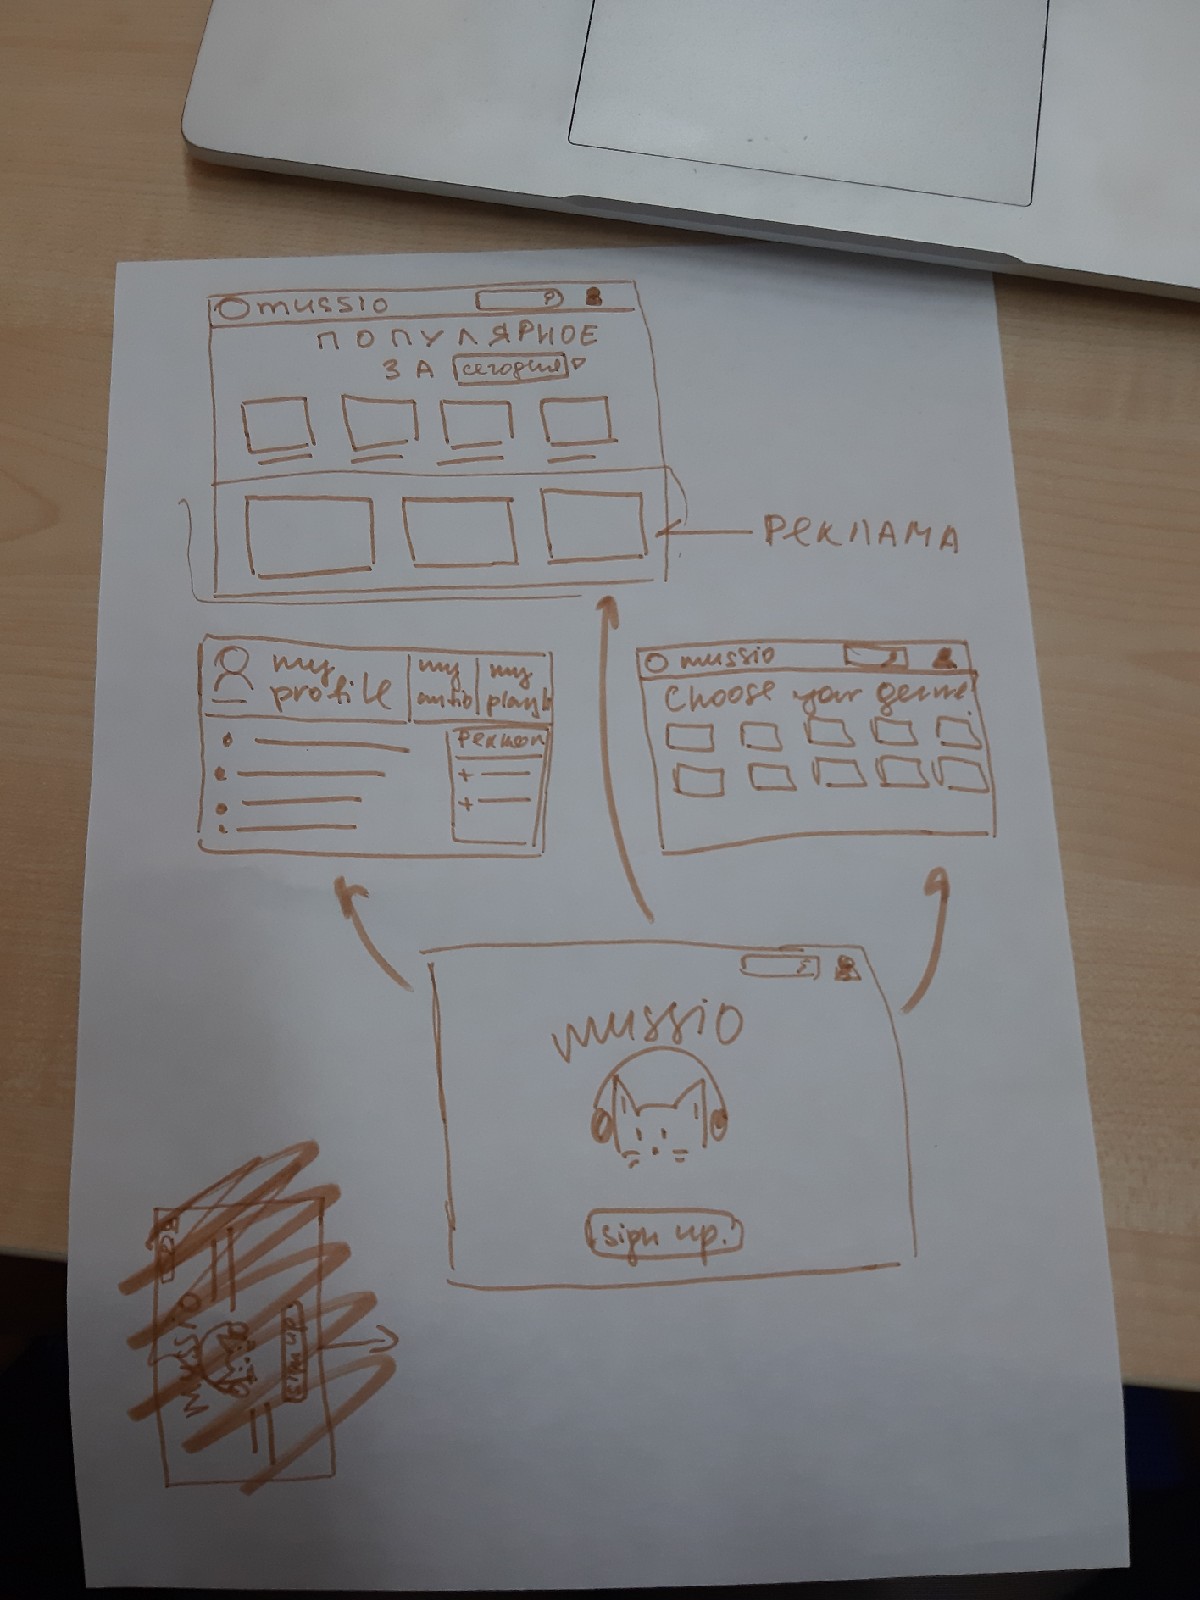 mussio
ПОПУЛЯРНОЕ
ЗА сегодня
РЕКЛАМА
my
profile
my
audio
my
playl
Рекмон
mussio
Choose your genre
mussio
sign up.
mussio
sign up